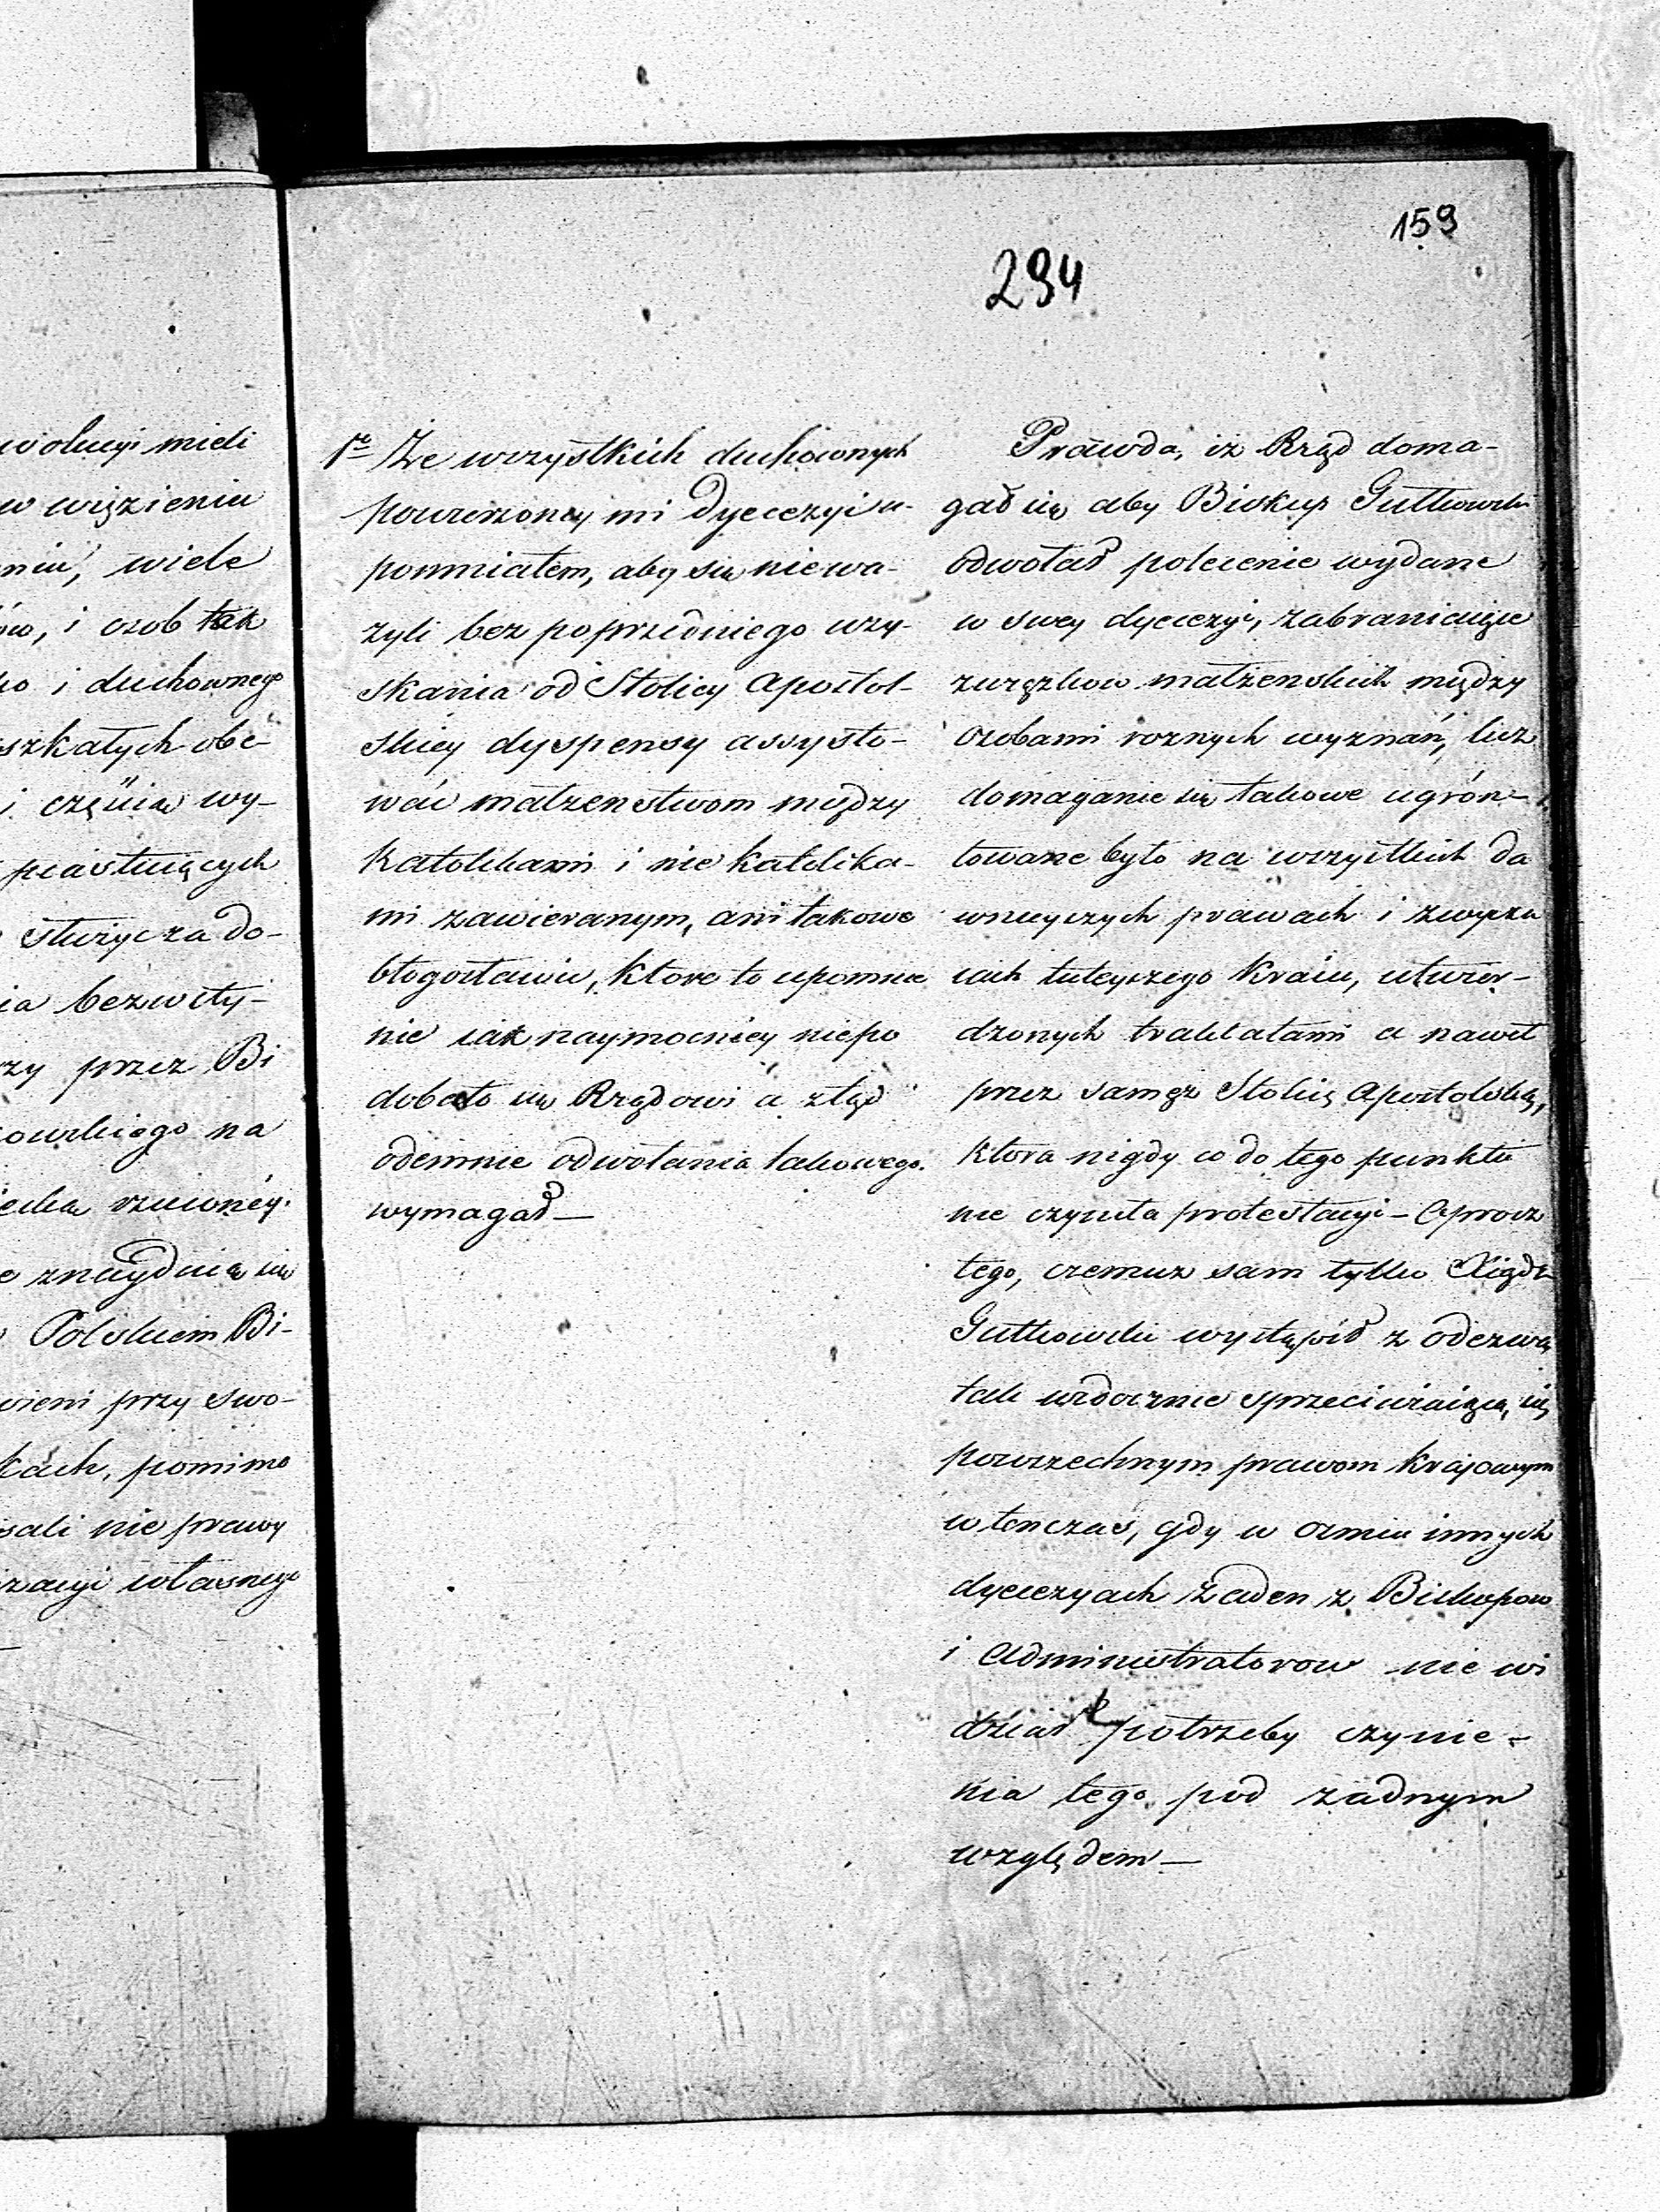 159
294
wolucyi mieli
w więzieniu
niu, wiele
ów, i osob tak
ko i duchownego
szkałych obe-
i częścią wy-
piastuiących
służyć za do-
ia bezwsty-
zy przez Bi
kowskiego na
rzuconéy.
znayduią się
Polskiem Bi-
wieni przy swo-
kach, pomimo
sali nie prawy
zacyi własnego
1e Że wszystkich duchownych
powierzoney mi Dyecezyi u-
pomniałem, aby się nie wa-
żyli bez poprzedniego uzy-
skania od Stolicy Apostol-
skiey dyspensy assysto-
wać małżenstwom między
Katolikami i nie katolika-
mi zawieranym, ani takowe
błogosławić, ktore to upomnie
nie iak naymocniey niepo
dobało się Rządowi a ztąd
odemnie odwołania takowego
wymagał—
Prawda, iż Rząd doma-
gał się aby Biskup Gutkowski
odwołał polecenie wydane
w swey dyecezyi, zabraniaiące
związkow małżenskich między
osobami roznych wyznań, lecz
domaganie się takowe ugrón-
towane było na wszystkich da
wnieyszych prawach i zwycza
iach tuteyszego Kraiu, utwier-
dzonych traktatami a nawet
przez samęż Stolicę Apostolską,
ktora nigdy co do tego punktu
nie czyniła protestacyi— Oprocz
tego, czemuż sam tylko Xiądz
Gutkowski wystąpił z odezwą
tak widocznie sprzeciwiaiącą się
powszechnym prawom krajowym
w tenczas, gdy w osmiu innych
dyecezyach żaden z Biskupow
i Administratorow nie wi
dział potrzeby czynie-
nia tego pod żadnym
względem—